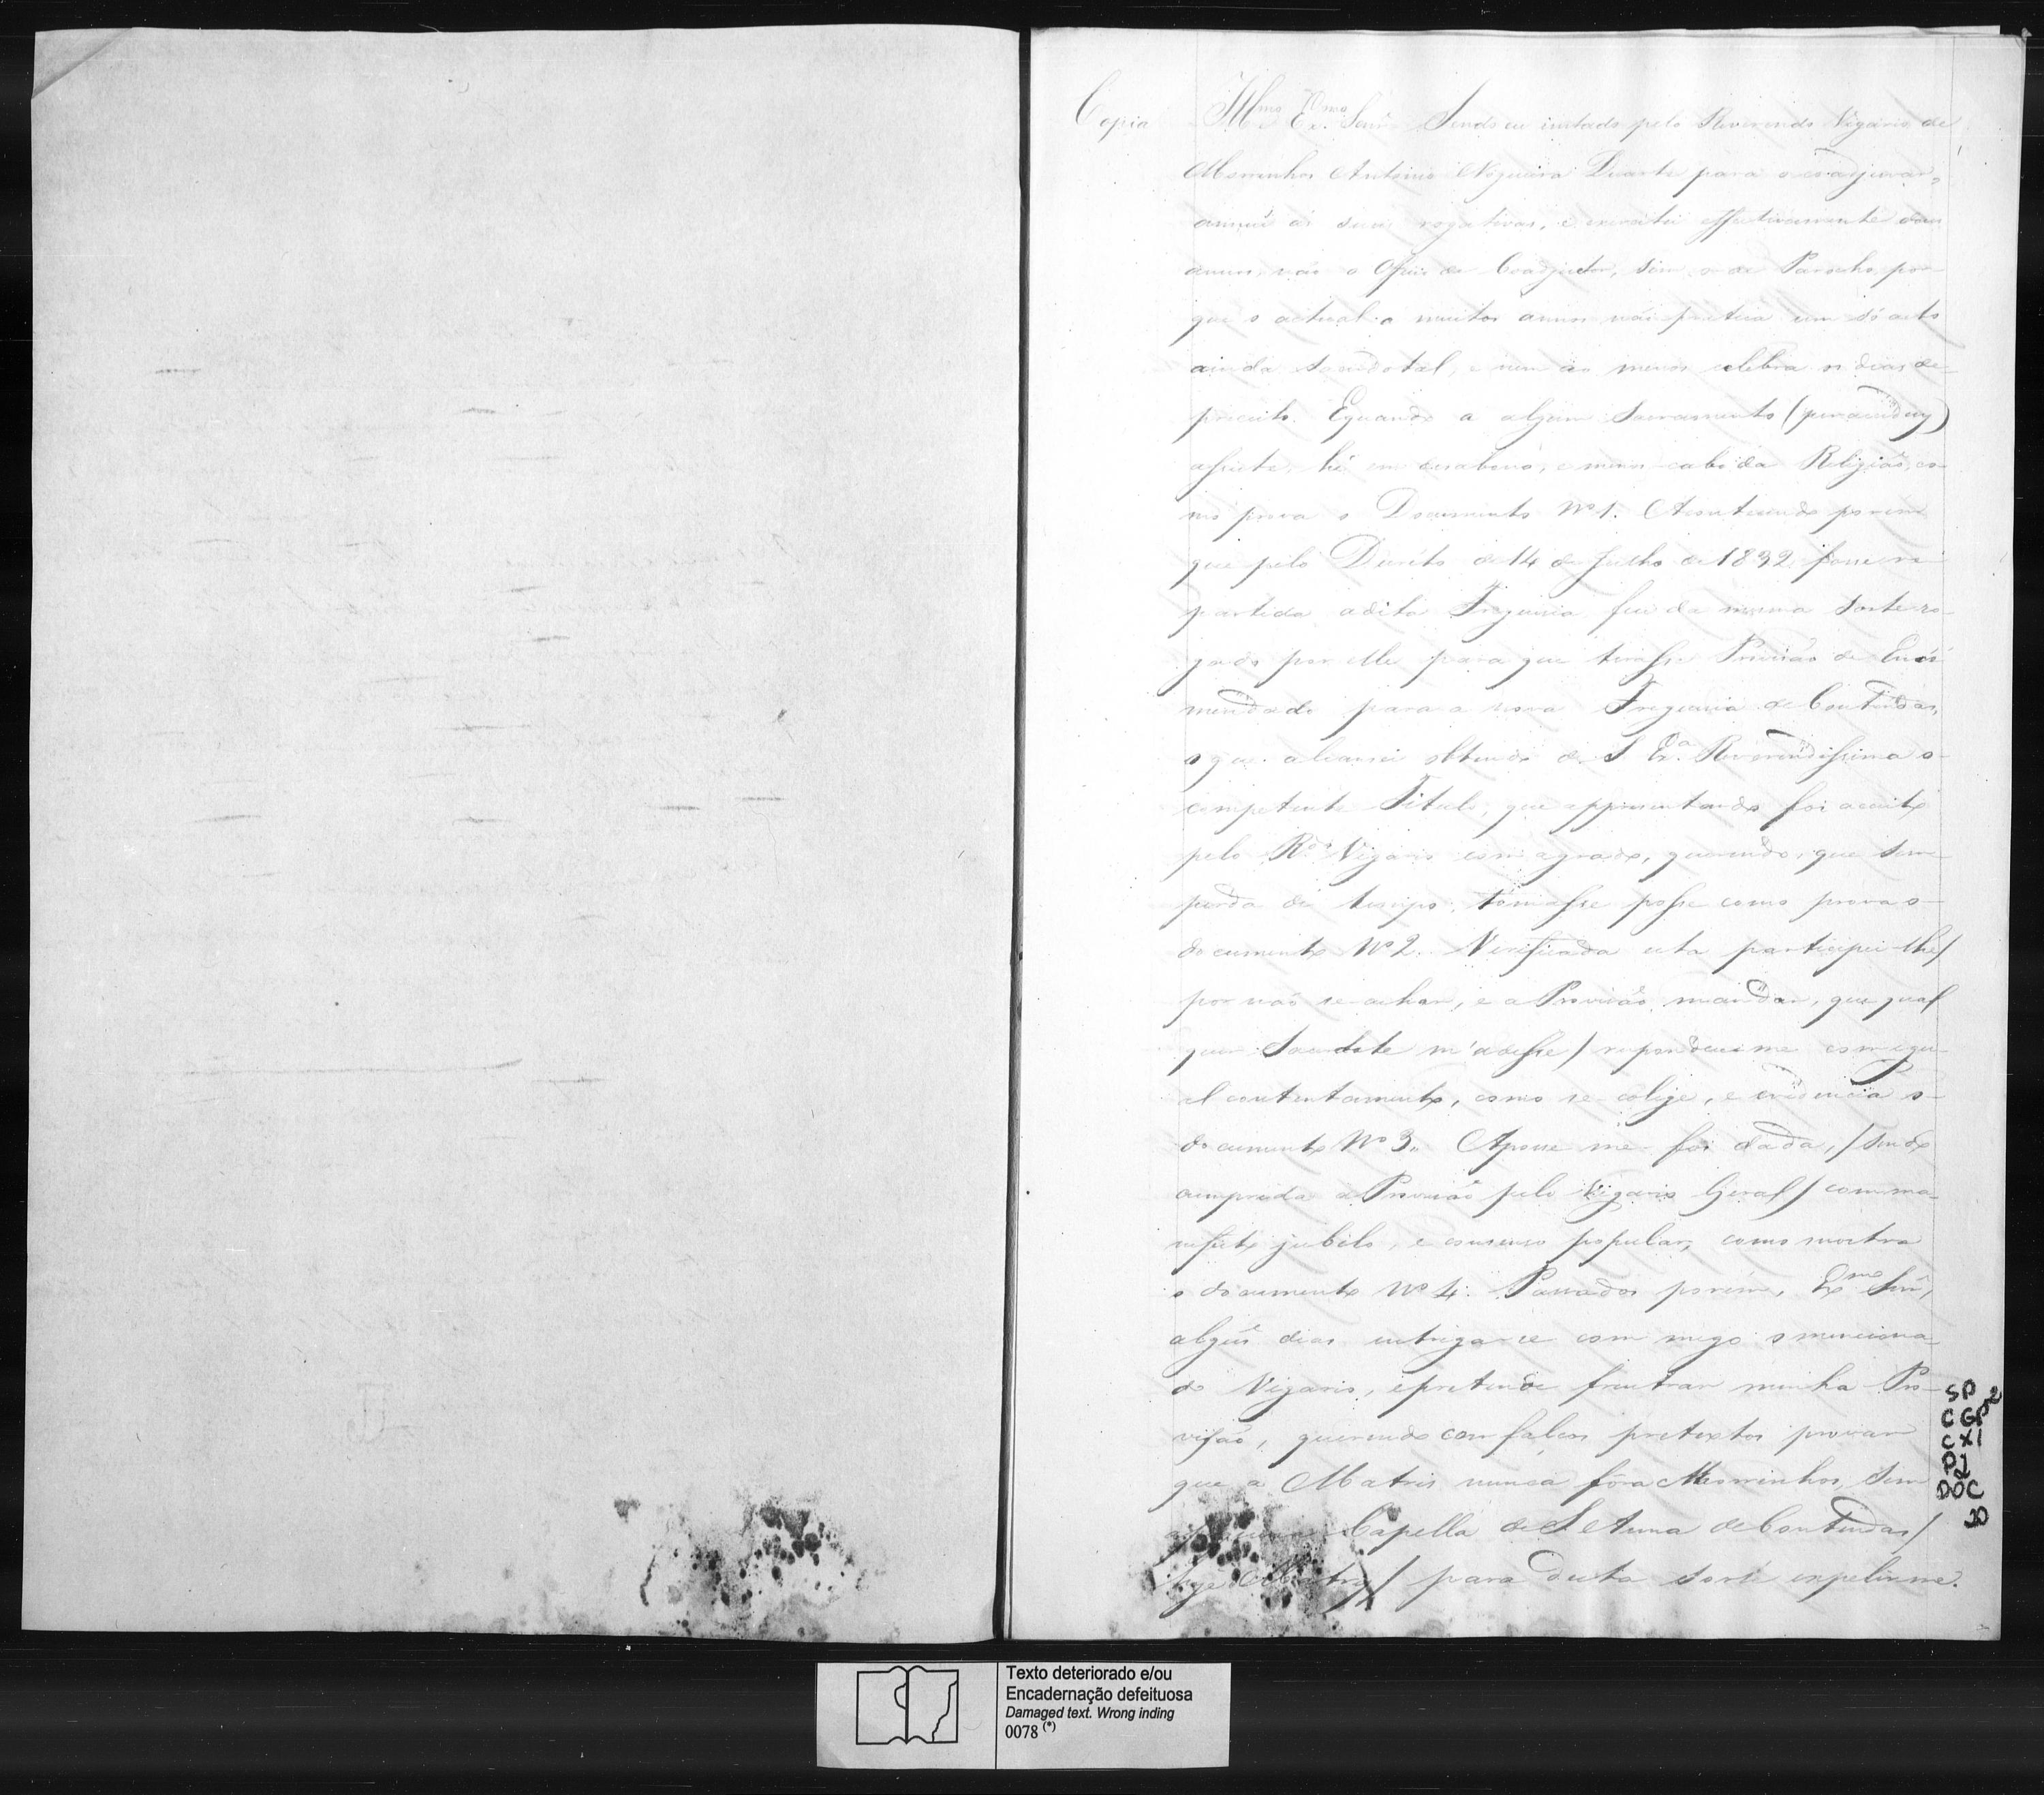 Copia Illmo Exmo Senr. Sendo eu instado pelo Reverendo Vigario de
Morrinhos Antonio Nogueira Duarte para o coadjuvar,
annui ás suas rogativas, e exercitei effectivamente dous
annos, não o Oficio de Coadjutor, sim o de Parocho, por
que o actual a muitos annos não pratica um só acto
ainda sacerdotal, e nem ao menos celebra os dias de
preceito. Equando a algum Sacramento
assiste, hé em desabono, e menos cabo da Religião, co-
mo prova o Documento No 1. Acontecendo porem
que pelo Decreto de 14 de Julho de 1832 fosse re
partida adita Freguesia fui da mesma sorte ro-
gado por elle para que tirasse Provisão de Enco
mendado para a nova Freguesia de Contendas,
o que alcansei obtendo de S Exa. Reverendissima o
competente Titulo, que appresentando foi aceito
pelo Rdo Vigario com agrado, querendo, que sem
perda de tempo tomasse posse como prova o
documento No 2. Verificada esta participei-lhe/
por não se achar, e a Provisão mandar, que qual
quer Sacerdote m'adesse/ respondeu-me com igu-
al contentamento, como se colige, e evidencia o
documento No 3,, Aposse me foi dada, /sendo
cumprida a Provisão pelo Vigario Geral/ com ma-
nifesto jubilo, e consenso popular, como mostra
o documento No 4. Passados porem, Exmo Snr,
algũs dias intriga-se com migo o menciona
do Vigario, epretende frustrar minha Pro-
visão, querendo com falços pretextos provar
que a Matris nunca fôra Morrinhos, sim
Capella de S Anna de Contendas/
para desta sorte expelir-me.
SP
CGP2
CX1
P2
DOC
20
Texto deteriorado e/ou
Encadernação defeituosa
Damaged text. Wrong inding
0078 (*)